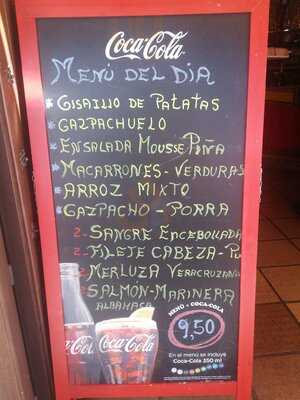 Coca-Cola
MENÚ DEL DIA
* GISAILLO DE PATATAS
* GAZPACHUELO
* ENSALADA MOUSSE PIÑA
* MACARRONES - VERDURAS
* ARROZ MIXTO
* GAZPACHO - PORRA
2- SANGRE ENCEBOLLADA
2- FILETE CABEZA-
2- MERLUZA VERACRUZANA
2- SALMÓN-MARINERA
ALBAHACA
MENÚ + COCA-COLA
9,50
En el menú se incluye
Coca-Cola 350 ml
Coca-Cola